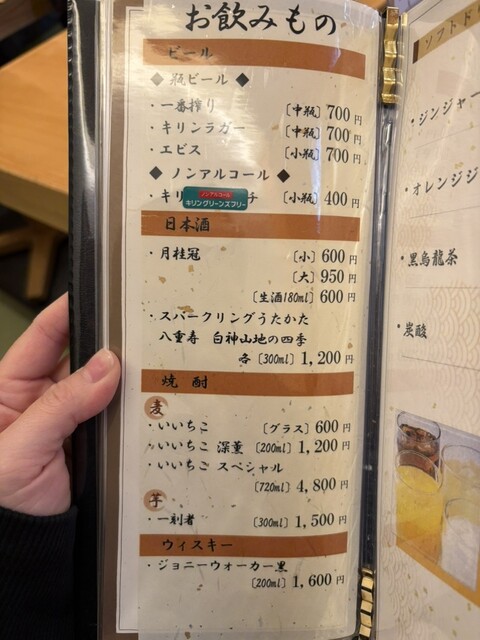 お飲みもの
ビール
◆ 瓶ビール ◆
・一番搾り 〔中瓶〕 700円
・キリンラガー 〔中瓶〕 700円
・エビス 〔小瓶〕 700円
◆ ノンアルコール ◆
・キリ
ノンアルコール
キリングリーンズフリー
チ 〔小瓶〕 400円
日本酒
・月桂冠 〔小〕 600円
〔大〕 950円
〔生酒180ml〕 600円
・スパークリングうたかた
八重寿 白神山地の四季
各〔300ml〕 1,200円
焼酎
麦
・いいちこ 〔グラス〕 600円
・いいちこ 深薫 〔200ml〕 1,200円
・いいちご スペシャル
〔720ml〕 4,800円
芋
・一刻者 〔300ml〕 1,500円
ウィスキー
・ジョニーウォーカー黒
〔200ml〕 1,600円
ソフトド
・ジンジャー
・オレンジジ
・黒烏龍茶
・炭酸